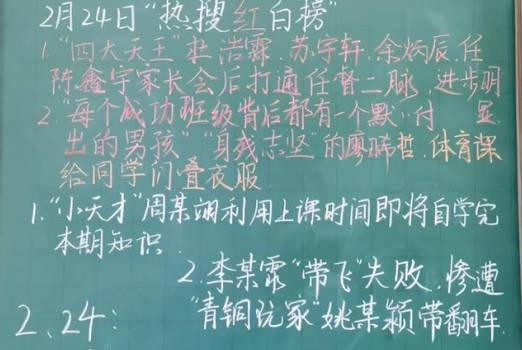 2月24日"热搜红白榜"
1."四大天王"杜浩霖.苏宇轩.余炳辰.任
陈鑫宇家长会后打通任督二脉,进步明
2."每个成功班级背后都有一个默 付 显
出的男孩""身残志坚"的廖晞哲.体育课
给同学们叠衣服
1."小天才"周某翊利用上课时间即将自学完
本期知识
2.李某霖"带飞"失败.惨遭
"青铜玩家"姚某颖带翻车.
2、24: